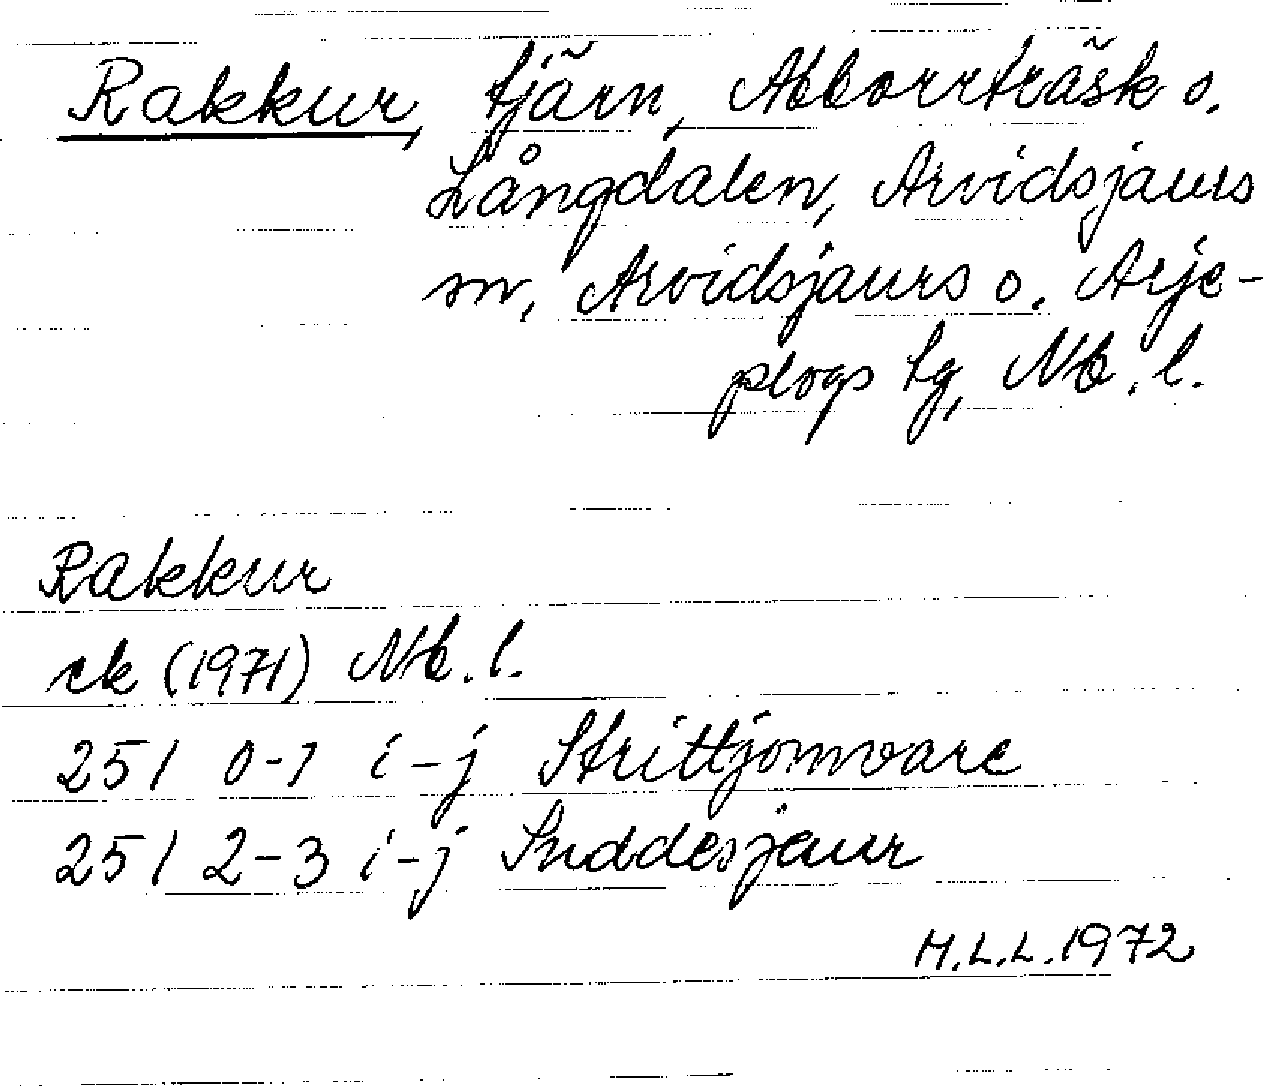 Rakkur, tjärn, Abborrträsk o.
Långdalen, Arvidsjaurs
sn, Arvidsjaurs o. Arje-
plogs lg, Nb. l.
Rakkur
ek (1971) Nb. l.
25 I 0-1 i-j Strittjomvare
25 I 2-3 i-j Suddesjaur
H.L.L. 1972